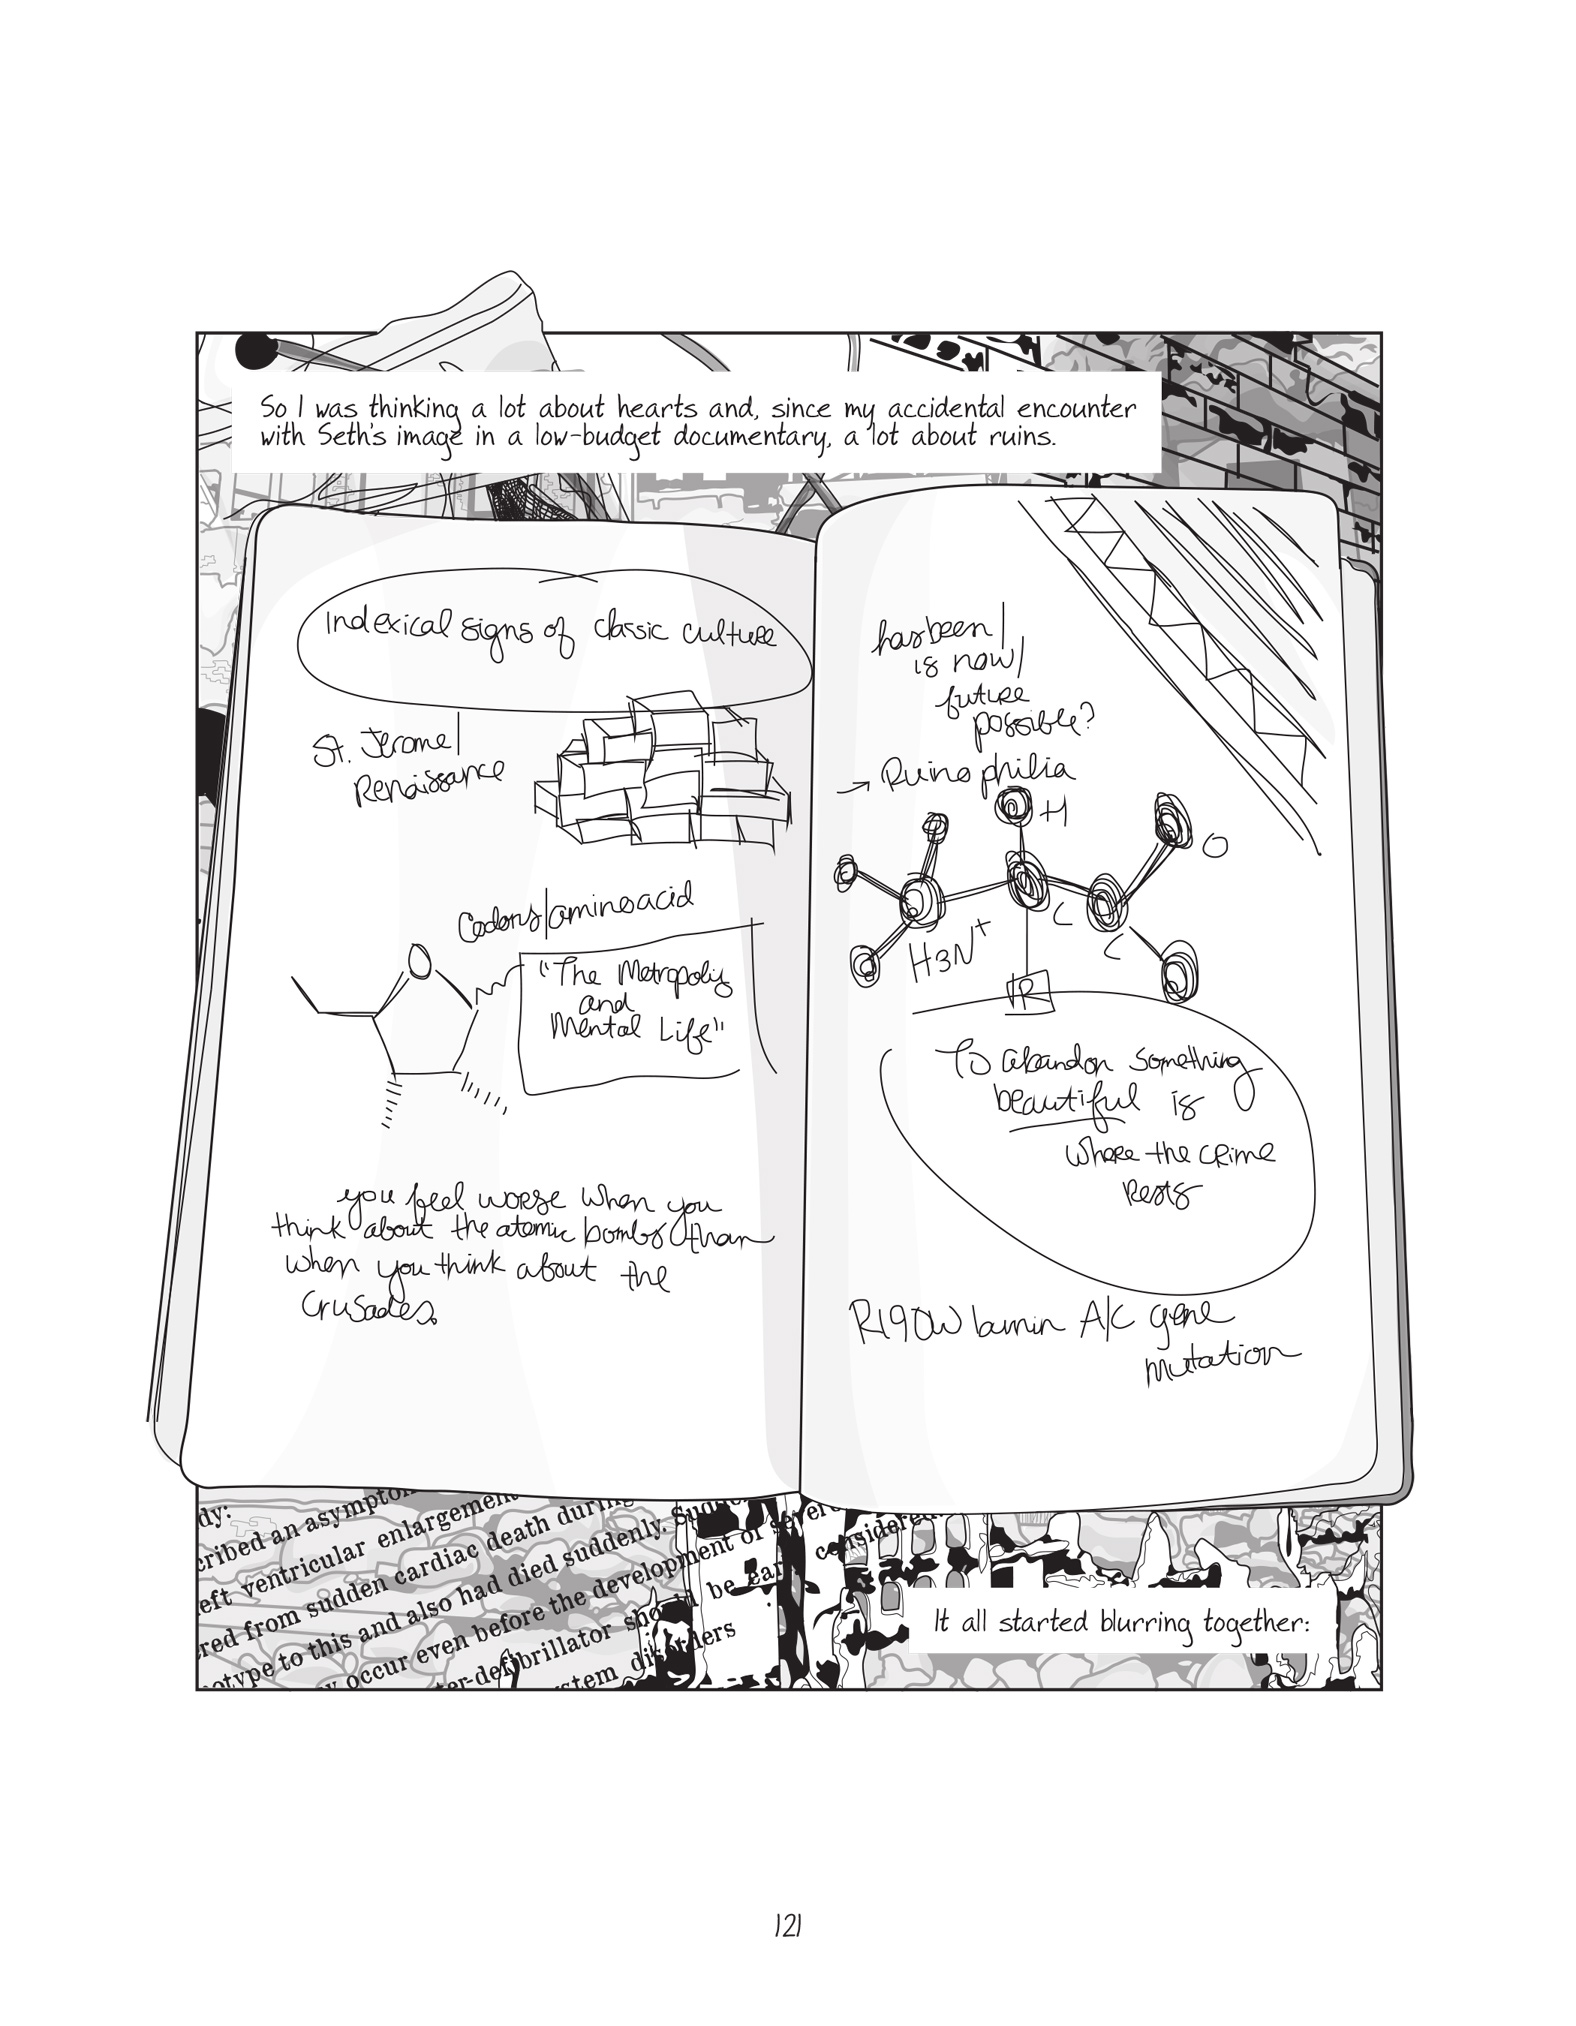 So I was thinking a lot about hearts and, since my accidental encounter
with Seth's image in a low-budget documentary, a lot about ruins.
Indexical signs of classic culture
St. Jerome/
Renaissance
Codons/aminoacid
O
"The Metropolis
and
Mental Life"
you feel worse when you
think about the atomic bombs than
when you think about the
Crusades.
has been/
is now/
future
possible?
→ Ruinophilia
H
O
C
C
H3N+
R
To abandon something
beautiful is
where the crime
rests
R190W lamin A/C gene
mutation
dy:
cribed an asympto
eft ventricular enlargement
red from sudden cardiac death during
otype to this and also had died suddenly. Sudde
y occur even before the development of severe
ter-defibrillator should be ear considered
stem disorders
It all started blurring together:
121